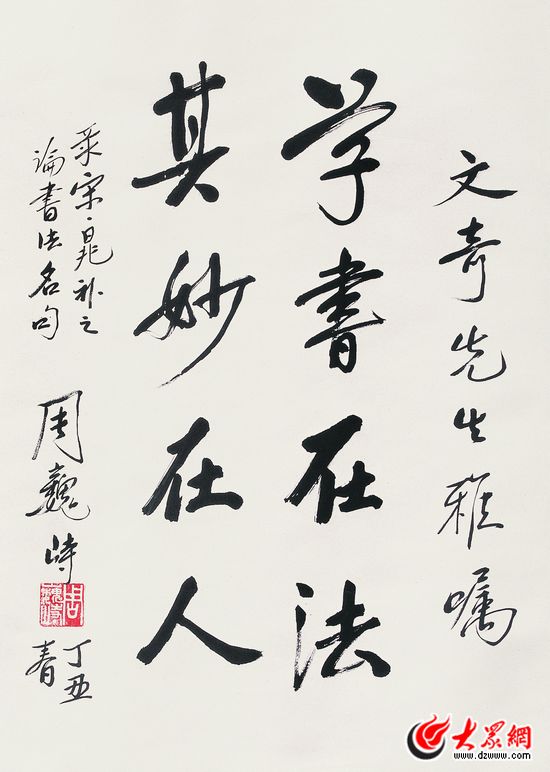 文奇先生雅嘱
学书在法
其妙在人
采宋·晁补之
论书法名句
周巍峙
丁丑
春
大眾網
www.dzwww.com